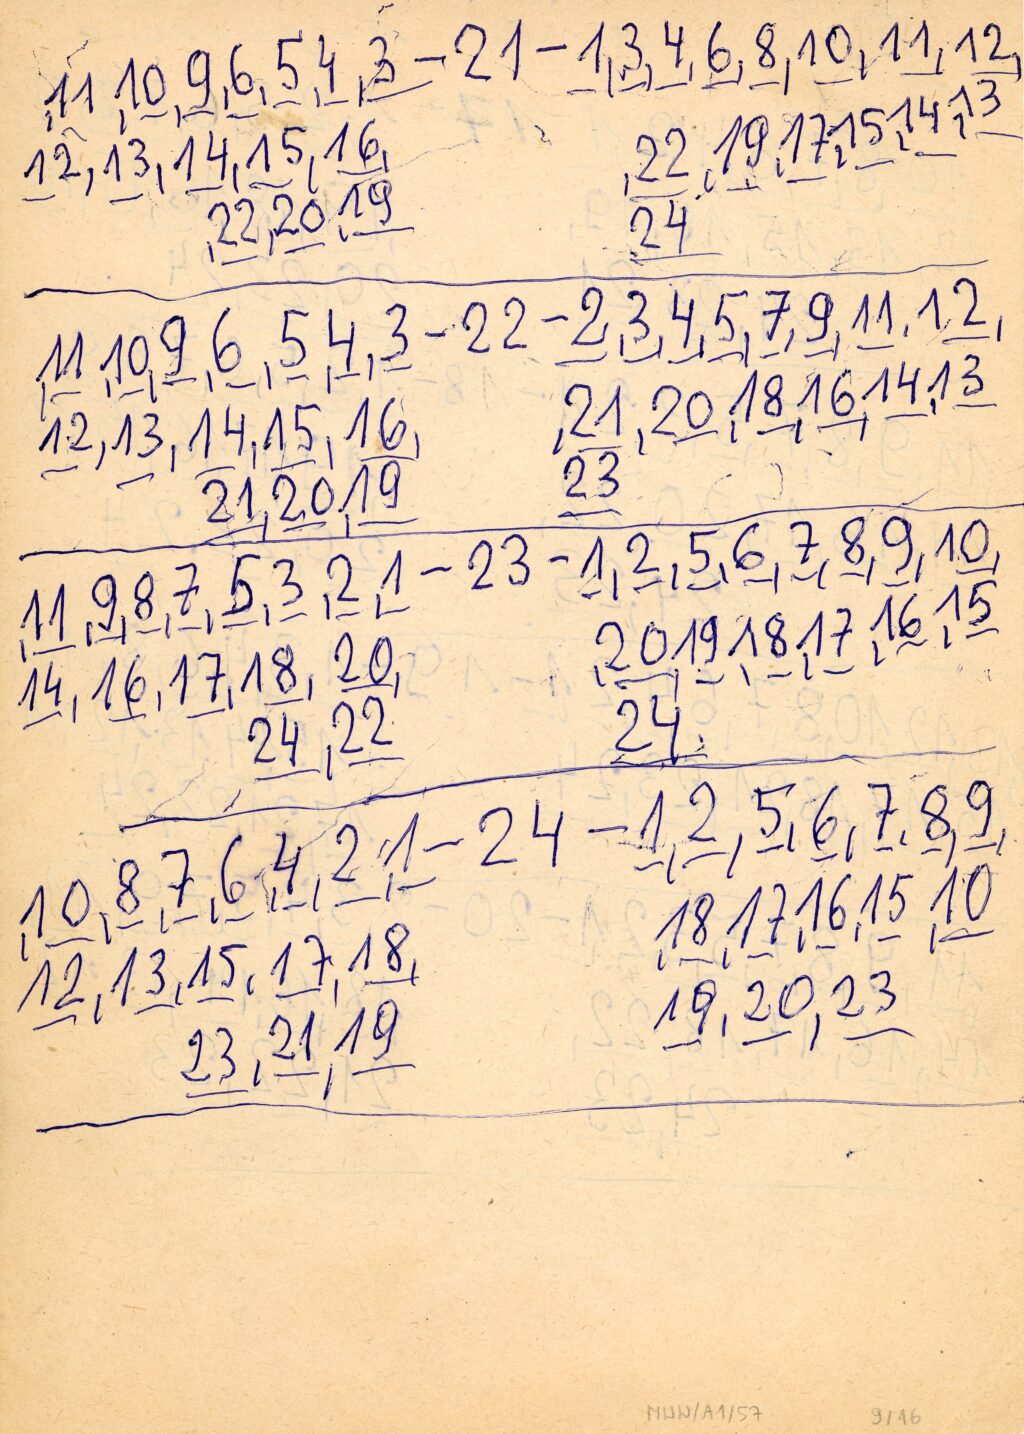 ,11,10,9,6,5,4,3-21-1,3,4,6,8,10,11,12,
12,13,14,15,16,
,22,19,17,15,14,13
,22,20,19
,24
,11,10,9,6,5,4,3-22-2,3,4,5,7,9,11,12,
12,13,14,15,16,
,21,20,18,16,14,13
21,20,19
23
,11,9,8,7,5,3,2,1-23-1,2,5,6,7,8,9,10,
14,16,17,18,20,
,20,19,18,17,16,15
24,22
24
,10,8,7,6,4,2,1-24-1,2,5,6,7,8,9,
12,13,15,17,18,
,18,17,16,15,10
23,21,19
19,20,23
MWW/A1/57
9/16